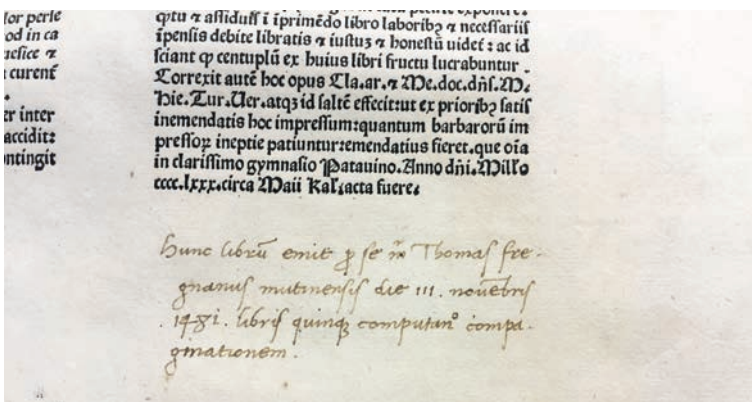 lor perle
od in ca
uesice ⁊
curent̄
er inter
accidit:
ontingit
qͥtu ⁊ assiduss ī īprimēdo libro laboribꝫ ⁊ necessariis
īpensis debite libratis ⁊ iustuꝫ ⁊ honestū uidet̄: ac id
sciant ꝙ centuplū ex huius libri fructu lucrabuntur.
Correxit autē hoc opus Cla.ar.⁊ Me.doc.dn̄s.M.
Hie.Tur.Uer.atqꝫ id saltē effecit:ut ex prioribꝫ satis
inemendatis hoc impressum:quantum barbarorū im
pressoꝝ ineptie patiuntur:emendatius fieret.que oīa
in clarissimo gymnasio Patauino.Anno dn̄i.Millo
cccc.lxxx.circa Maii Kal.acta fuere.
Hunc librū emit ꝓ se mr̄ Thomas fre-
gnanus mutinensis die III. nouēbris
.1481. libris quinqꝫ computan° compa-
ginationem.